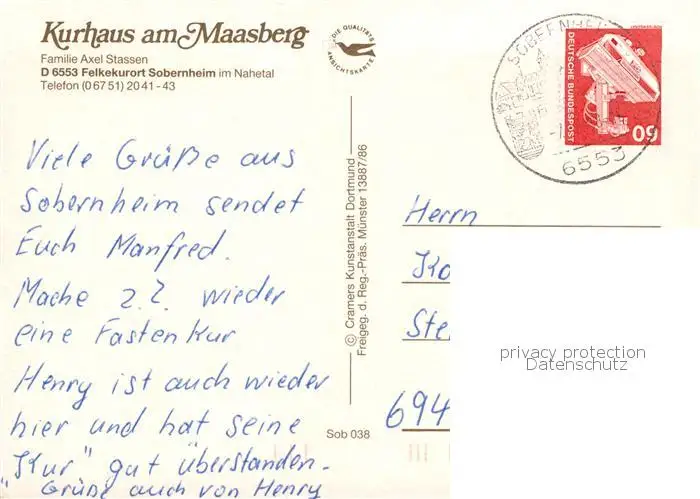 Kurhaus am Maasberg
Familie Axel Stassen
D 6553 Felkekurort Sobernheim im Nahetal
Telefon (0 67 51) 20 41 - 43
DIE QUALITÄTS
ANSICHTSKARTE
SOBERNHEIM
6553
DEUTSCHE BUNDESPOST
60
Viele Grüße aus
Sobernheim sendet
Euch Manfred.
Mache z.Z. wieder
eine Fastenkur
Henry ist auch wieder
hier und hat seine
"Kur" gut überstanden-
Grüße auch von Henry
© Cramers Kunstanstalt Dortmund
Freigeg. d. Reg.-Präs. Münster 13887/86
Sob 038
Herrn
Ko
Ste
694
privacy protection
Datenschutz